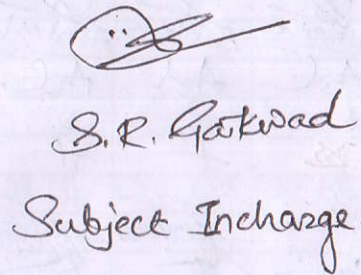 S.R. Gaikwad
Subject Incharge